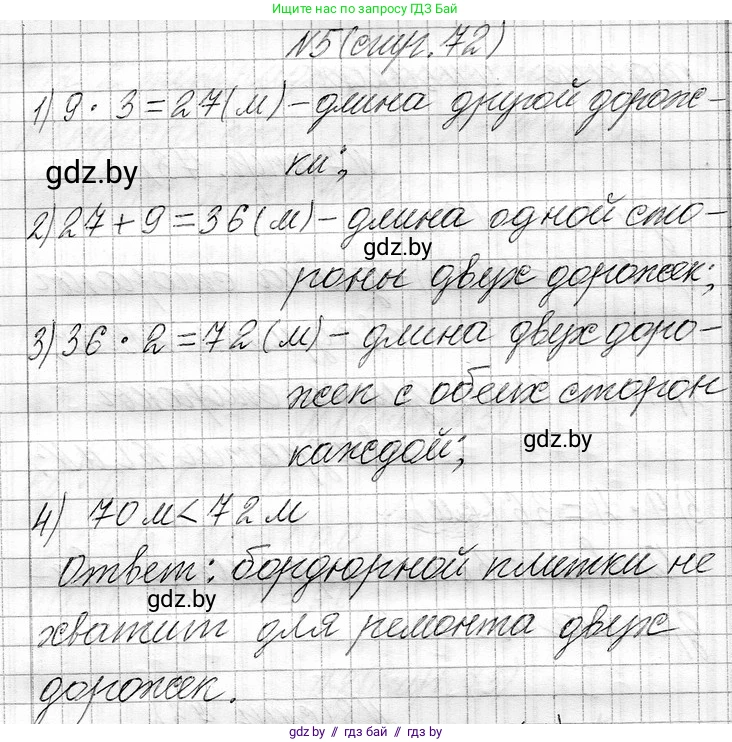 Ищите нас по запросу ГДЗ БАЙ
№5 (стр. 72)
1) 9 · 3 = 27 (м) – длина другой дорож-
ки;
gdz.by
2) 27 + 9 = 36 (м) – длина одной сто-
gdz.by
роны двух дорожек;
3) 36 · 2 = 72 (м) – длина двух доро-
жек с обеих сторон
каждой;
gdz.by
4) 70 м < 72 м
Ответ: бордюрной плитки не
gdz.by
хватит для ремонта двух
дорожек.
gdz.by // гдз бай // gdz.by